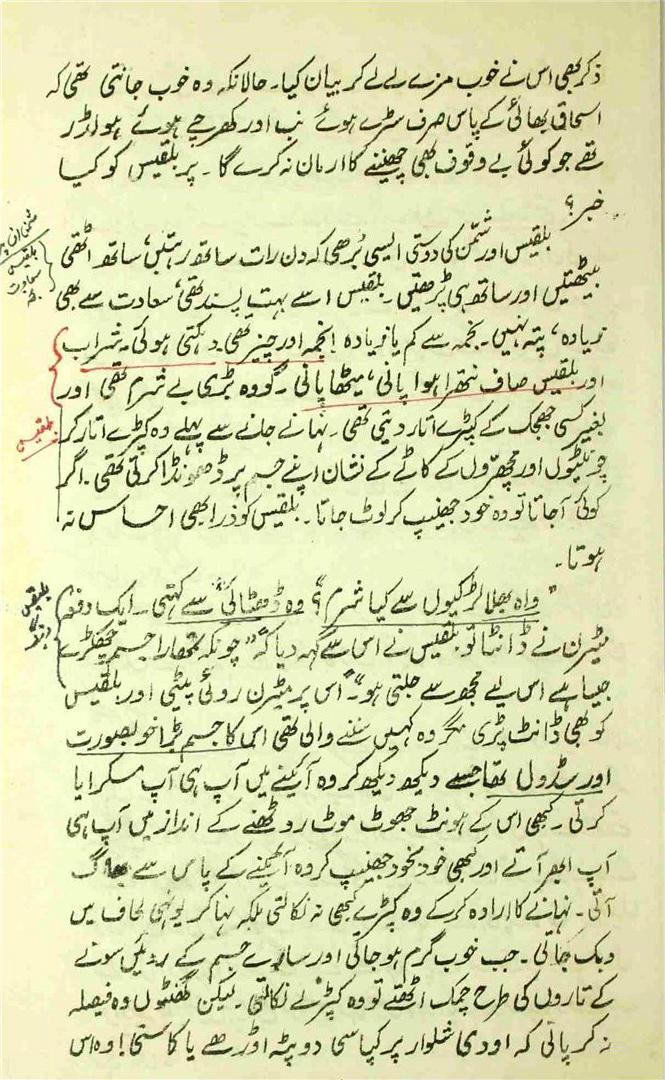 ذکر بھی اس نے خوب مزے لے لے کر بیان کیا۔ حالانکہ وہ خوب جانتی تھی کہ
اسحاق بھائی کے پاس صرف سڑے ہوئے نب اور کھرچے ہوئے ہولڈر
تھے جو کوئی بے وقوف بھی چھیننے کا ارمان نہ کرے گا۔ پر بلقیس کو کیا
خبر؟
بلقیس اور شمّن کی دوستی ایسی بڑھی کہ دن رات ساتھ رہتیں، ساتھ اٹھتی
بیٹھتیں اور ساتھ ہی پڑھتیں۔ بلقیس اسے بہت پسند تھی، سعادت سے بھی
زیادہ، پتہ نہیں۔ نجمہ سے کم یا زیادہ! نجمہ اور چیز تھی۔ دہکتی ہوئی۔ شراب
اور بلقیس صاف نتھرا ہوا پانی، میٹھا پانی۔ گو وہ بڑی بے شرم تھی اور
بغیر کسی جھجک کے کپڑے اتار دیتی تھی۔ نہانے جانے سے پہلے وہ کپڑے اتار کر
چونٹیوں اور مچھروں کے کاٹے کے نشان اپنے جسم پر ڈھونڈا کرتی تھی۔ اگر
کوئی آجاتا تو وہ خود جھینپ کر لوٹ جاتا۔ بلقیس کو ذرا بھی احساس نہ
ہوتا۔
"واہ بھلا لڑکیوں سے کیا شرم؟" وہ ڈھٹائی سے کہتی۔ ایک دفعہ
میٹرن نے ڈانٹا تو بلقیس نے اس سے کہہ دیا کہ "چونکہ تمھارا جسم چھکڑے
جیسا ہے اس لیے مجھ سے جلتی ہو"۔ اس پر میٹرن روئی پیٹی اور بلقیس
کو بھی ڈانٹ پڑی مگر وہ کہیں سننے والی تھی اس کا جسم بڑا خوبصورت
اور سڈول تھا جسے دیکھ دیکھ کر وہ آئینے میں آپ ہی آپ مسکرایا
کرتی۔ کبھی اس کے ہونٹ جھوٹ موٹ روٹھنے کے انداز میں آپ ہی
آپ ابھر آتے اور کبھی خود بخود جھینپ کر وہ آئینے کے پاس سے بھاگ
آتی۔ نہانے کا ارادہ کرکے وہ کپڑے کبھی نہ نکالتی بلکہ نہا کر یونہی لحاف میں
دبک جاتی۔ جب خوب گرم ہو جاتی اور سارے جسم کے روئیں سونے
کے تاروں کی طرح چمک اٹھتے تو وہ کپڑے نکالتی۔ لیکن گھنٹوں وہ فیصلہ
نہ کر پاتی کہ اودی شلوار پر کپاسی دوپٹہ اوڑھے یا کاسنی! وہ اس
بلقیس
سعادت
بلقیس
بلقیس